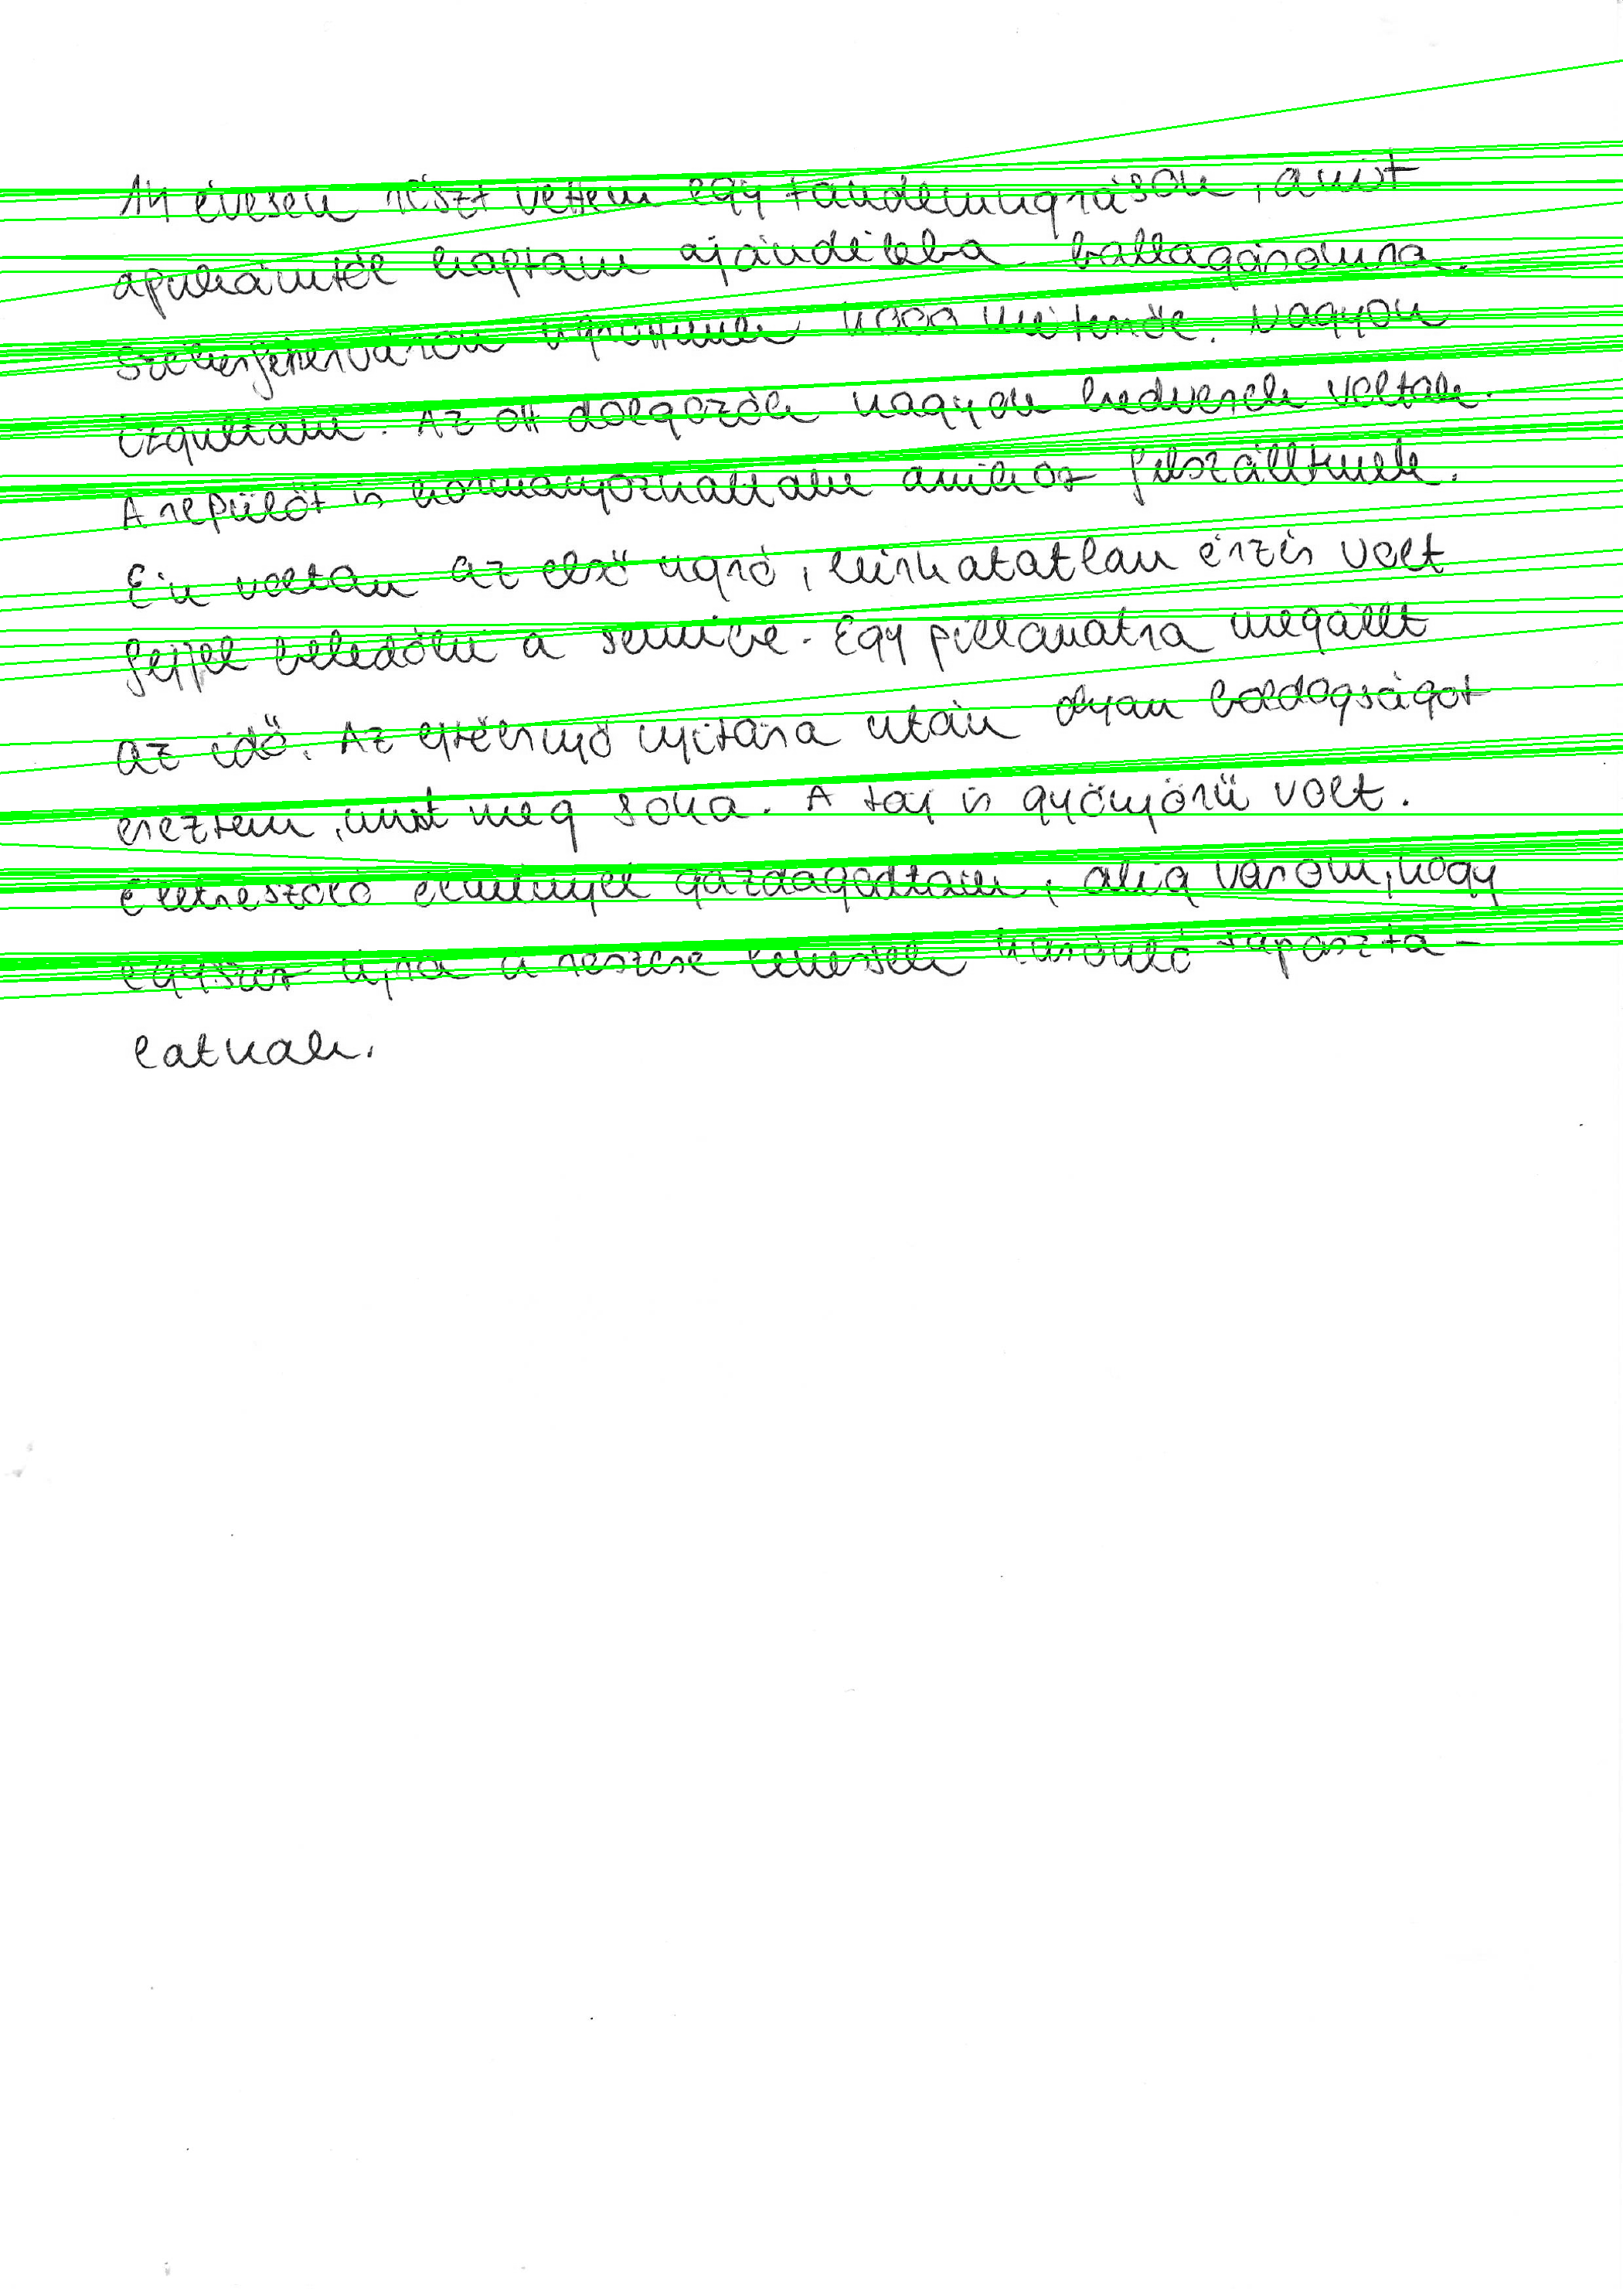 14 évesen részt vettem egy tandemugráson, amit
apukámtól kaptam ajándékba ballagásomra.
Székesfehérváron ugrottunk 4000 méterről. Nagyon
izgultam. Az ott dolgozók nagyon kedvesek voltak.
A repülőt is kormányozhattam amikor felszálltunk.
Én voltam az első ugró, leírhatatlan érzés volt
fejjel beledőlni a semmibe. Egy pillanatra megállt
az idő. Az ejtőernyő nyitása után olyan boldogságot
éreztem, mint még soha. A táj is gyönyörű volt.
Életreszóló élménnyel gazdagodtam, alig várom, hogy
egyszer újra is részese lehessek hasonló tapaszta-
latnak.